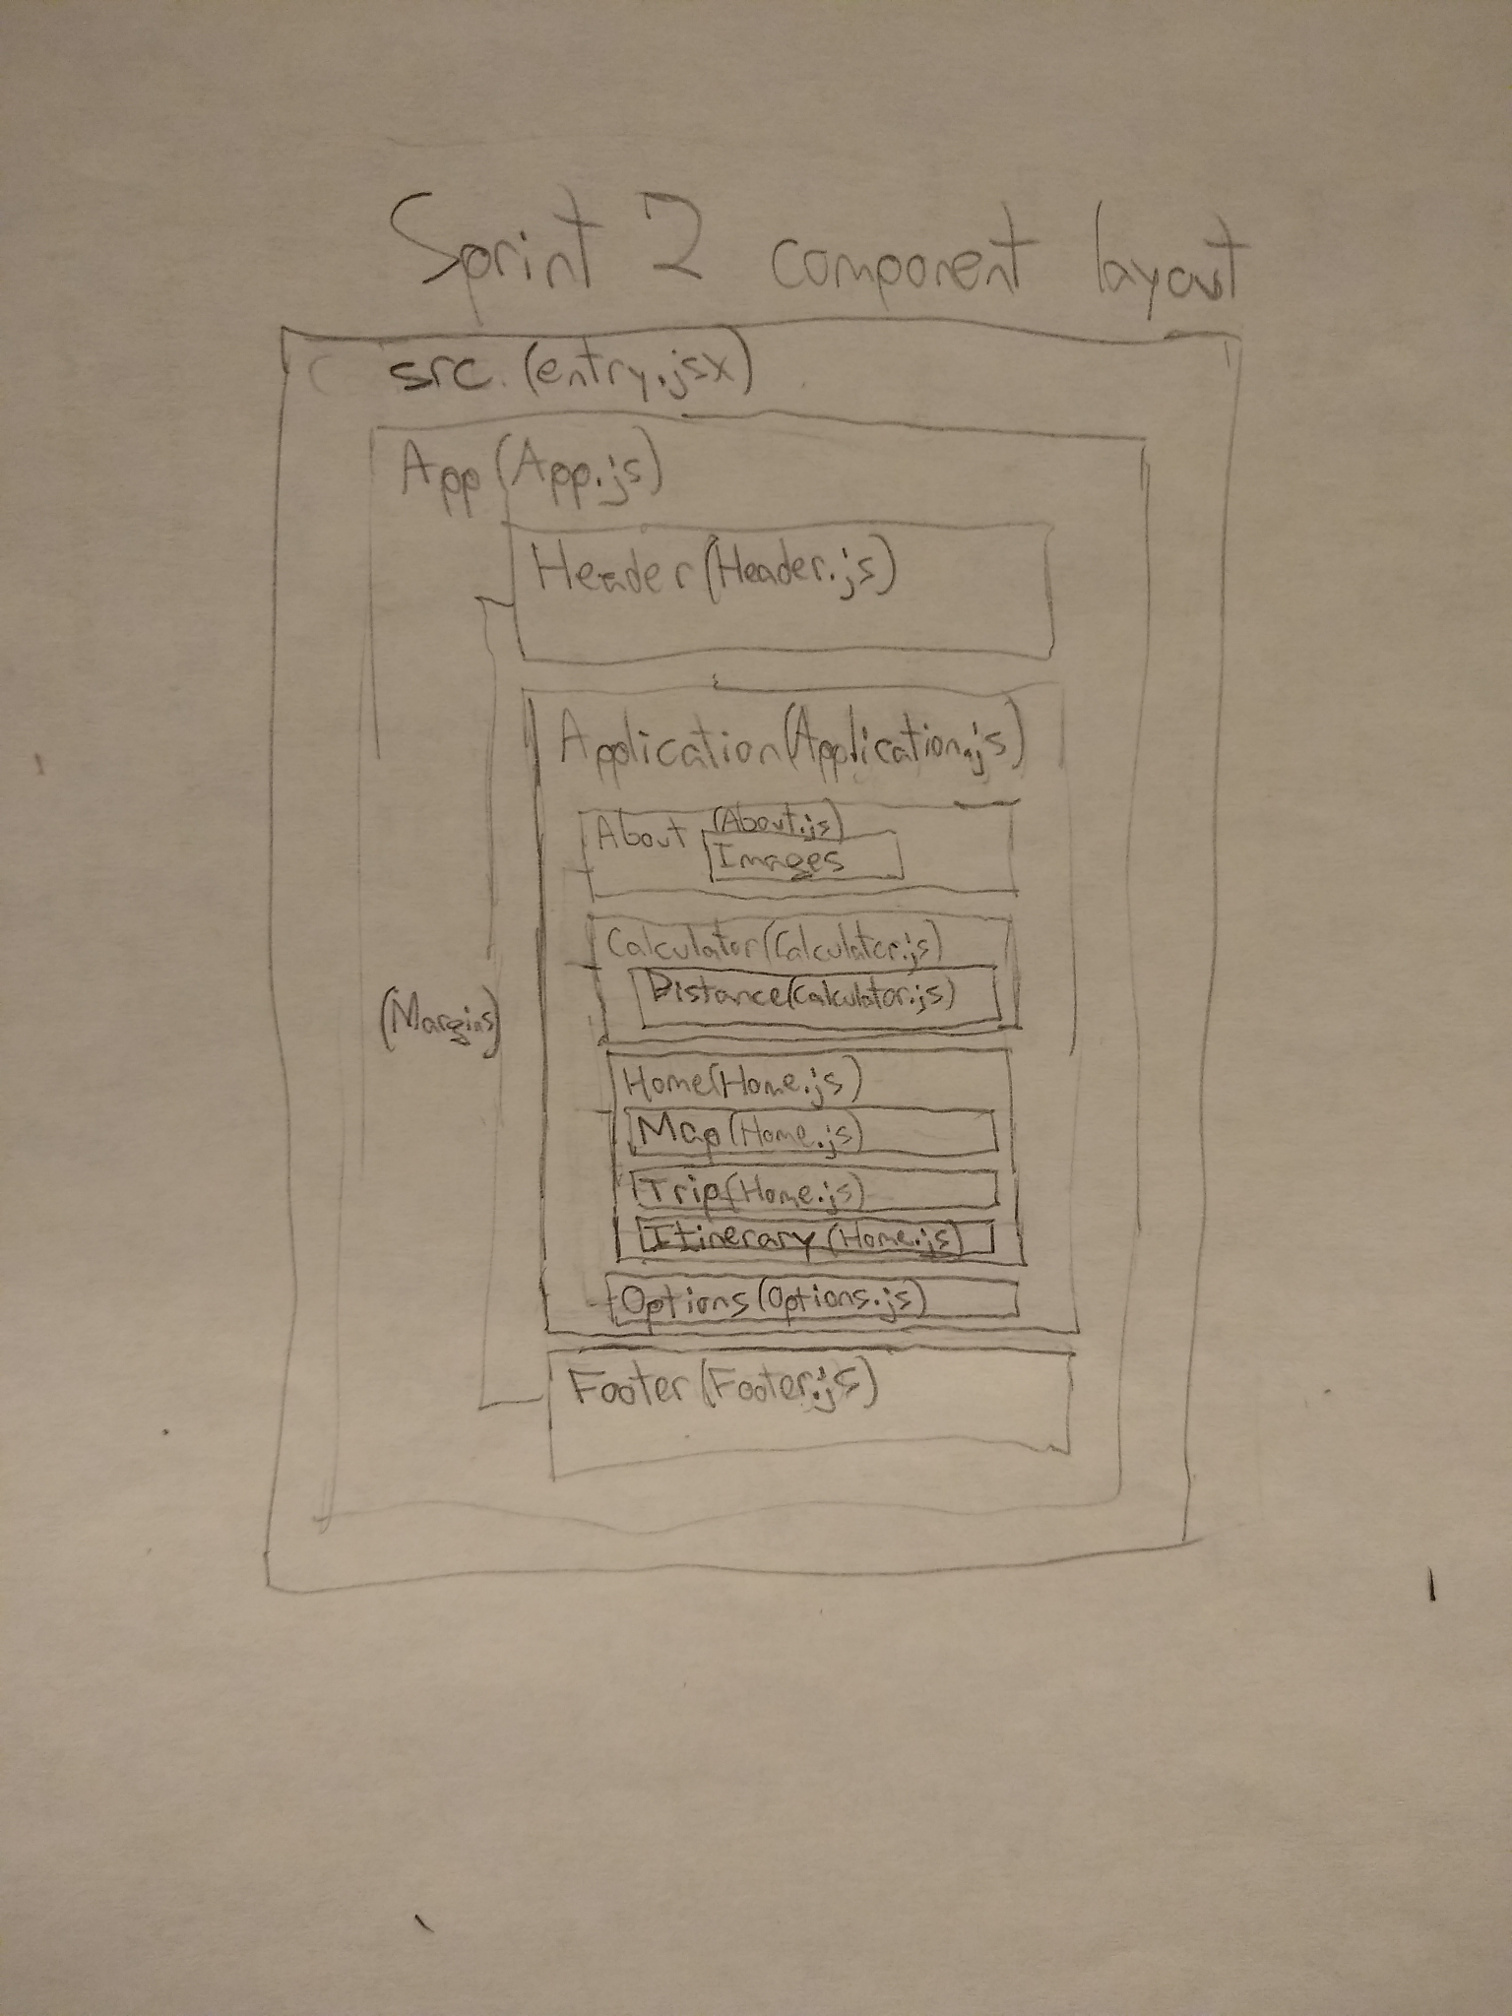 Sprint 2 component layout
src. (entry.jsx)
App (App.js)
Header (Header.js)
Application (Application.js)
About (About.js)
Images
Calculator (Calculator.js)
Distance (Calculator.js)
(Margins)
Home (Home.js)
Map (Home.js)
Trip (Home.js)
Itinerary (Home.js)
Options (Options.js)
Footer (Footer.js)